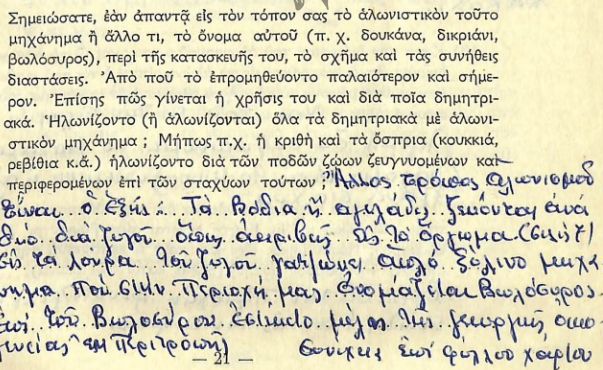 Σημειώσατε, ἐὰν ἀπαντᾷ εἰς τὸν τόπον σας τὸ ἁλωνιστικὸν τοῦτο
μηχάνημα ἢ ἄλλο τι, τὸ ὄνομα αὐτοῦ (π. χ. δουκάνα, δικριάνι,
βωλόσυρος), περὶ τῆς κατασκευῆς του, τὸ σχῆμα καὶ τὰς συνήθεις
διαστάσεις. Ἀπὸ ποῦ τὸ ἐπρομηθεύοντο παλαιότερον καὶ σήμε-
ρον. Ἐπίσης πῶς γίνεται ἡ χρῆσις του καὶ διὰ ποῖα δημητρι-
ακά. Ἡλωνίζοντο (ἢ ἁλωνίζονται) ὅλα τὰ δημητριακὰ μὲ ἁλωνι-
στικὸν μηχάνημα ; Μήπως π.χ. ἡ κριθὴ καὶ τὰ ὄσπρια (κουκκιά,
ρεβίθια κ.ἄ.) ἡλωνίζοντο διὰ τῶν ποδῶν ζῴων ζευγνυομένων καὶ
περιφερομένων ἐπὶ τῶν σταχύων τούτων ; Ἄλλος τρόπος ἁλωνισμοῦ
εἶναι ὁ ἑξῆς: Τὰ βόδια ἢ ἀγελάδες ζεύονται ἀνὰ
δύο διὰ ζυγοῦ ὅπως ἀκριβῶς εἰς τὸ ὄργωμα
εἰς τὰ λουρα τοῦ ζυγοῦ ξύλινο μηχά
νημα ποὺ στὴν περιοχή μας ὀνομάζεται βωλόσυρος.
τοῦ βωλοσύρου μέλος τῆς γεωργικῆς οἰκο
γενείας
— 21 — συνέχεια ἐπὶ φύλλου χαρτίου